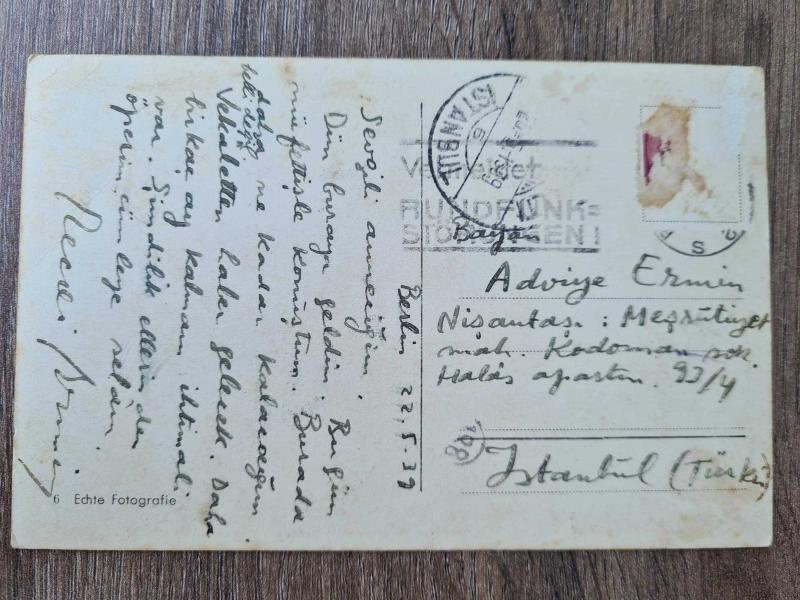 Berlin 22.5.39
Sevgili anneciğim.
Dün buraya geldim. Bugün
müfettişle konuştum. Burada
daha ne kadar kalacağım
belli değil.
Vekaletten haber gelecek. Daha
birkaç ay kalmam ihtimali
var. Şimdilik ellerinden
öperim, cümleye selâm.
6 Echte Fotografie
ISTANBUL
6
RUNDFUNK=
Bayan
Adviye Ermin
Nişantaşı: Meşrûtiyet
mah. Kodaman sok.
Halâs apartm. 93/4
Istanbul (Türkei)